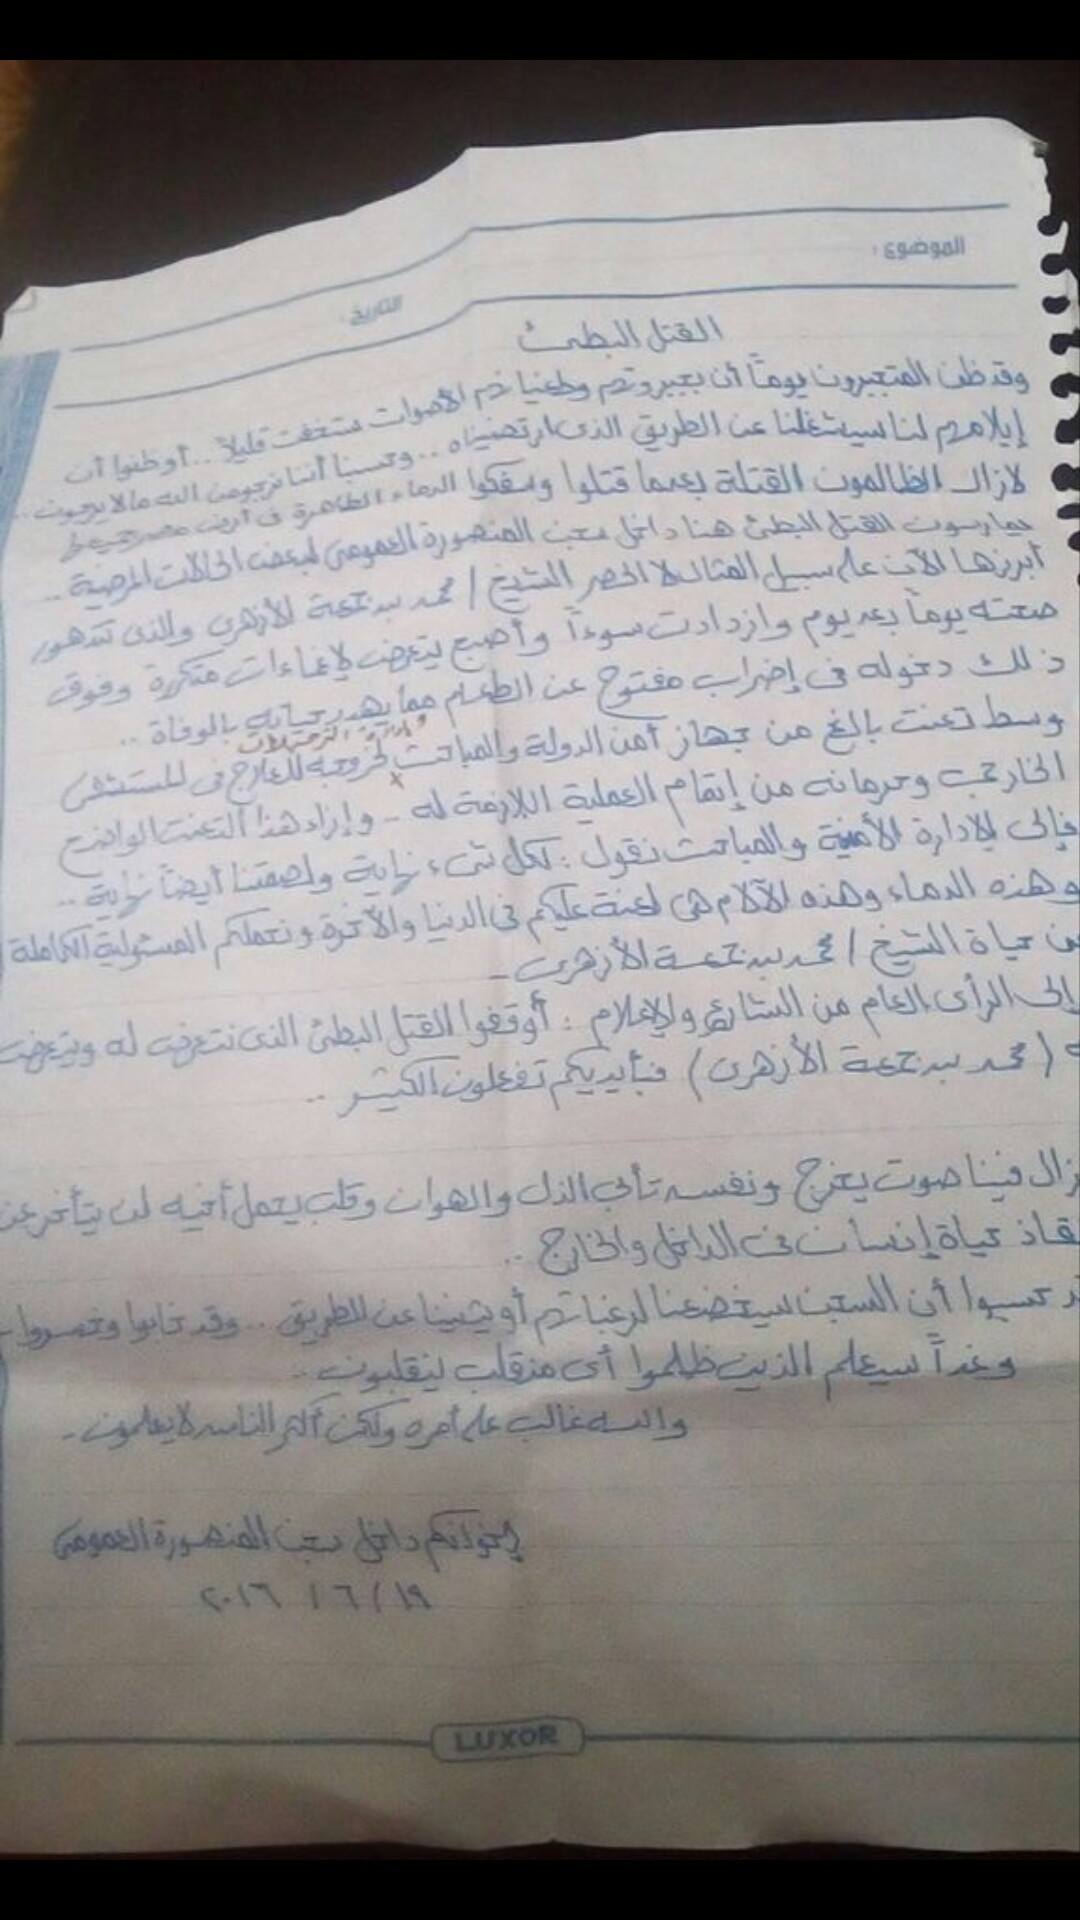 الموضوع:
التاريخ:
القتل البطئ
وقد ظن المتجبرون يوماً أن بجبروتهم وطغيانهم الأصوات ستخفت قليلاً .. أو ظنوا أن
إيلامهم لنا سيشغلنا عن الطريق الذى ارتضيناه .. وحسبنا أننا نرجو من الله ما لا يرجون ..
لازال الظالمون القتلة بعدما قتلوا وسفكوا الدماء الطاهرة فى أرض مصر جميعها
يمارسون القتل البطئ هنا داخل سجن المنصورة العمومى لبعض الحالات المرضية ..
أبرزها الآن على سبيل المثال لا الحصر الشيخ / محمد بن جمعة الأزهرى والذى تتدهور
صحته يوماً بعد يوم وازدادت سوءاً وأصبح يتعرض لإغماءات متكررة وفوق
ذلك دخوله فى إضراب مفتوح عن الطعام مما يهدد حياته بالوفاة ..
وسط تعنت بالغ من جهاز أمن الدولة والمباحث لخروجه للعلاج فى المستشفى
الخارجى وحرمانه من إتمام العملية اللازمة له .. وإزاء هذا التعنت الواضح
فإلى الإدارة الأمنية والمباحث نقول : لكل شىء نهاية ولصمتنا أيضاً نهاية ..
وهذه الدماء وهذه الآلام هى لعنة عليكم فى الدنيا والآخرة ونحملكم المسئولية الكاملة
عن حياة الشيخ / محمد بن جمعة الأزهرى -
إلى الرأى العام من الشارع والإعلام : أوقفوا القتل البطئ الذى نتعرض له ويتعرض
(محمد بن جمعة الأزهرى) فبأيديكم تفعلون الكثير ..
يزال فينا صوت يخرج ونفس تأبى الذل والهوان وقلب يحمل أخيه لن يتأخر عن
إنقاذ حياة إنسان فى الداخل والخارج ..
حسبوا أن السجن سيخضعنا لرغباتهم أو يثنينا عن الطريق .. وقد خابوا وخسروا -
وغداً سيعلم الذين ظلموا أى منقلب ينقلبون ..
والله غالب على أمره ولكن أكثر الناس لا يعلمون -
إخوانكم داخل سجن المنصورة العمومى
١٩ / ٦ / ٢٠١٦
LUXOR